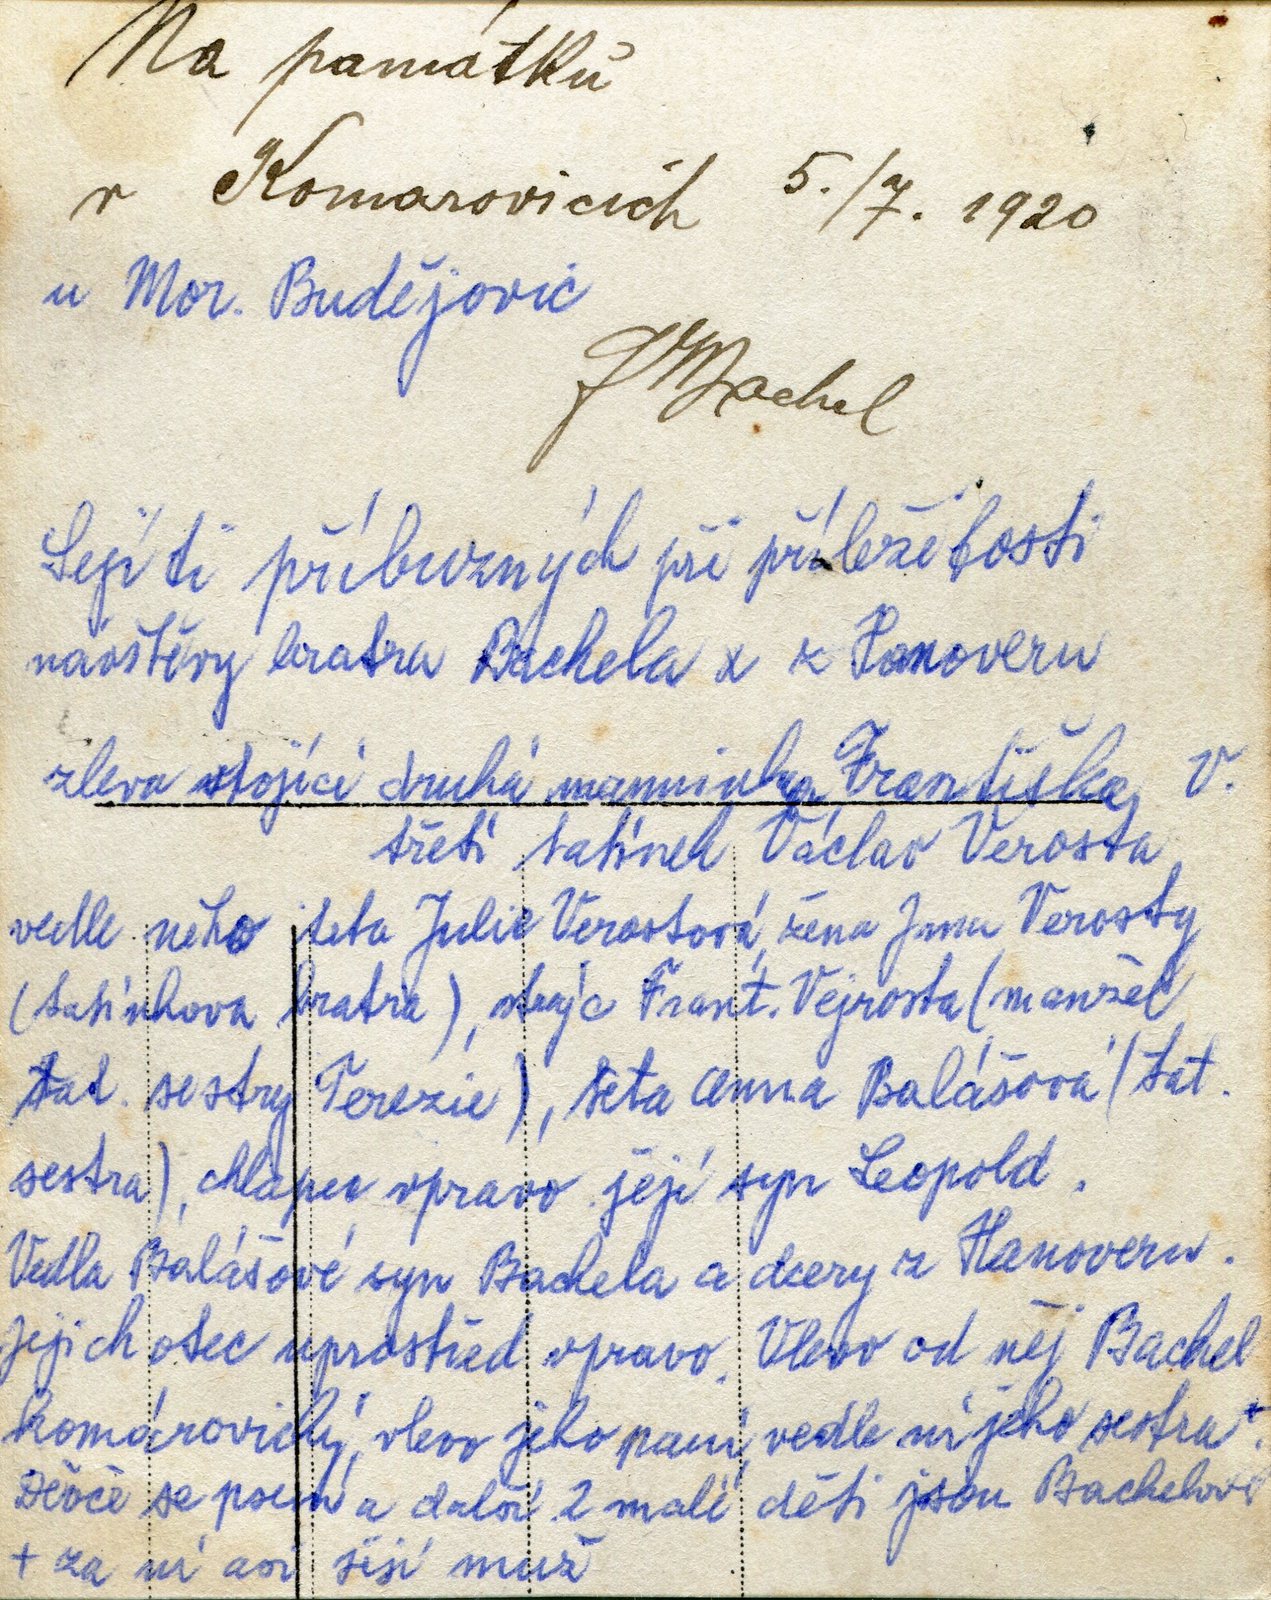 Na památku
v Komarovicích 5./7. 1920
u Mor. Budějovic
Bachel
Sejití příbuzných při příležitosti
návštěvy bratra Bachela x z Hanoveru
zleva stojící druhá maminka Františka V.
třetí tatínek Václav Verosta
vedle něho teta Julie Verostová, žena Jana Verosty
(tatínkova bratra), strýc Frant. Vejrosta (manžel
tat. sestry Terezie), teta Anna Balášová (tat.
sestra), chlapec vpravo její syn Leopold.
Vedla Balášové syn Bachela a dcery z Hanoveru.
Jejich otec uprostřed vpravo. Vlevo od něj Bachel
komárovický, vlevo jeho paní, vedle ní jeho sestra +.
Děvče se psem a další 2 malé děti jsou Bachelovi
+ za ní asi její muž